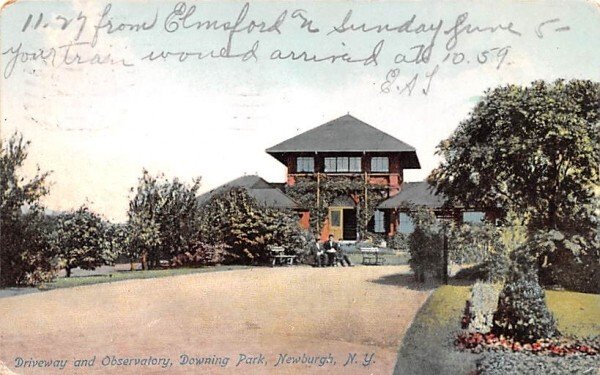 11.27 from Elmsford on Sunday June 5 -
your train would arrived at 10.59
E.A.S
Driveway and Observatory, Downing Park, Newburgh, N. Y.